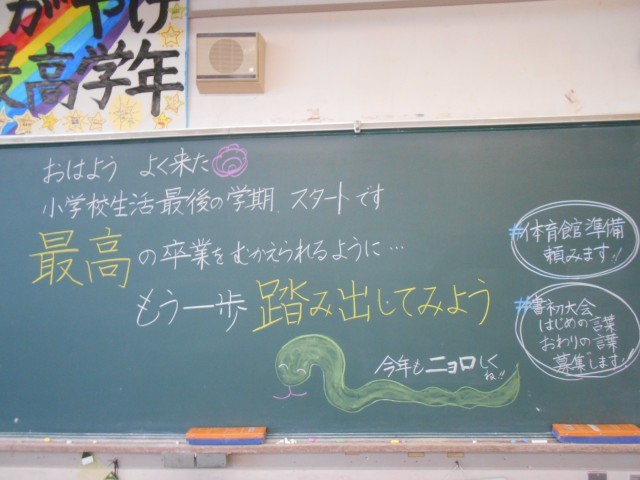 がやけ
最高学年
おはよう よく来た
小学校生活最後の学期、スタートです
最高の卒業をむかえられるように…
もう一歩踏み出してみよう
今年もニョロしくね!!
#体育館準備
頼みます!!
#書初大会
はじめの言葉
おわりの言葉
募集します!